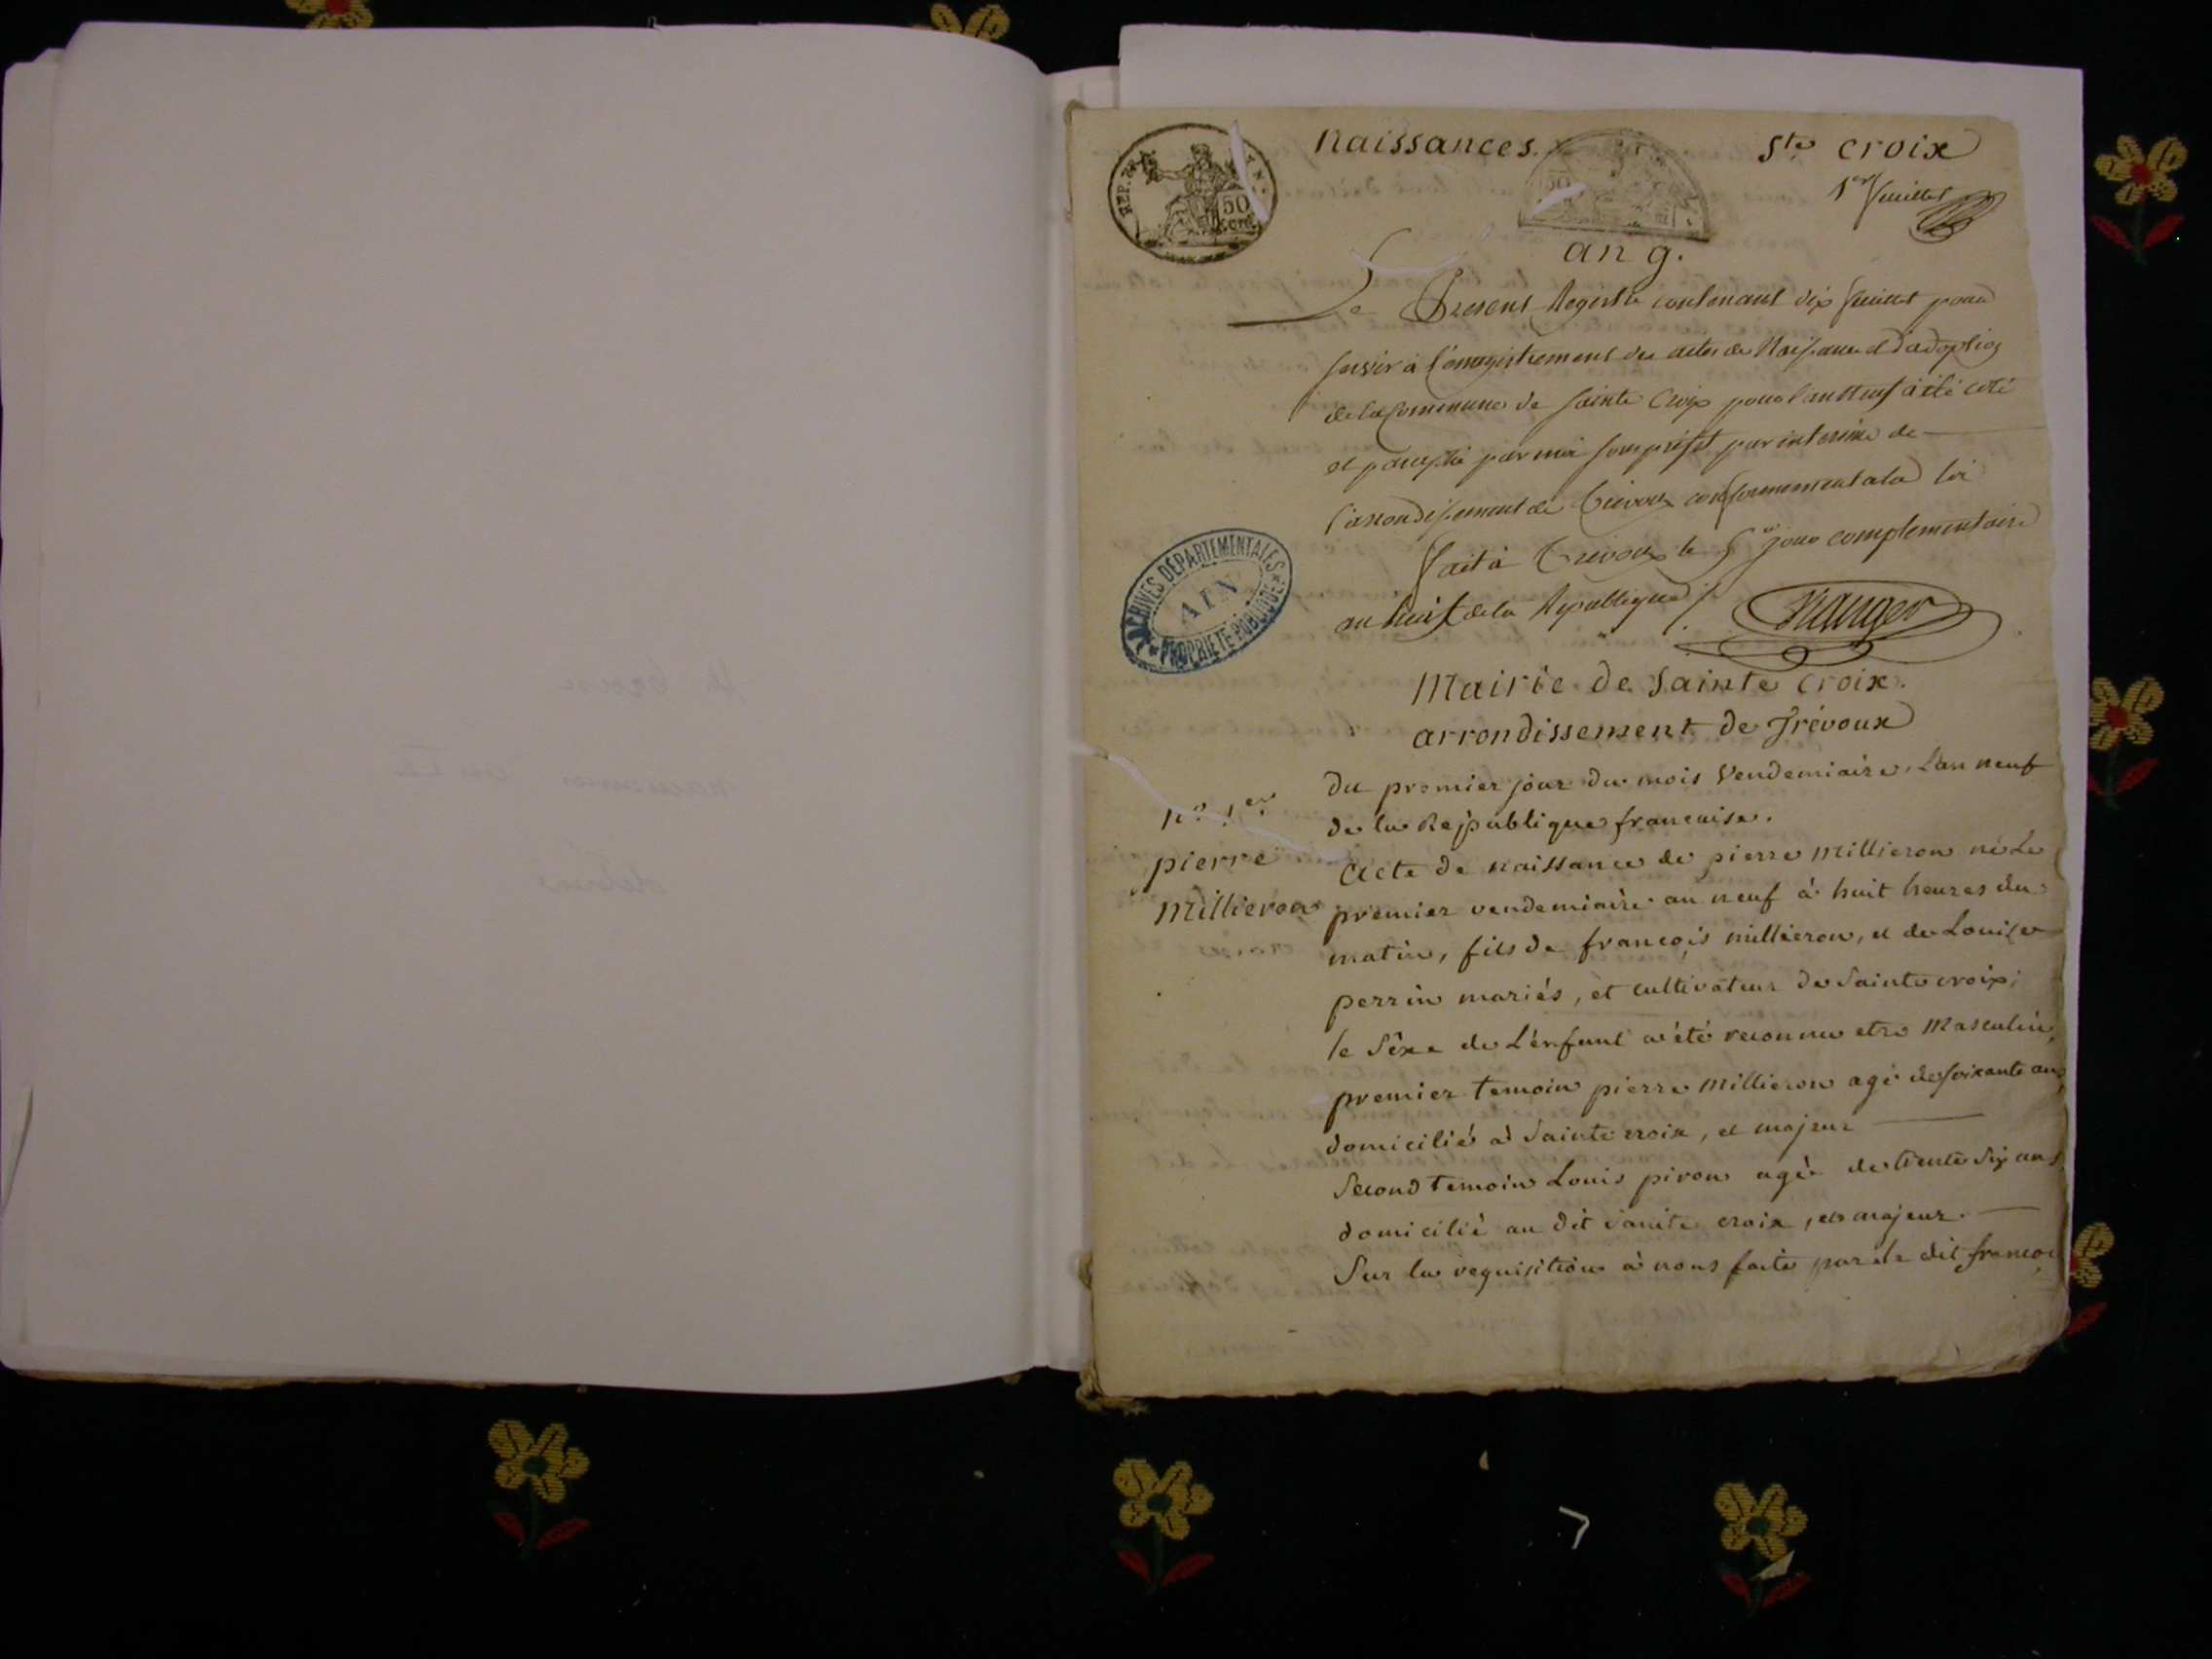 naissances. Ste croix
1er feuillet
REP. FRA. 50 cent.
an 9.
Le Present Registre contenant dix feuillets pour
servir à l'enregistrement des actes de Naissance et d'adoption
de la Commune de Sainte Croix pour l'an neuf à été coté
et paraphé par moi sous préfet par interime de
l'arrondissement de Trevoux conformement a la loi
fait à Trevoux le 5e jour complementaire
an huit de la Republique
ARCHIVES DEPARTEMENTALES
AIN
PROPRIETE PUBLIQUE
Mairie de Sainte Croix.
arrondissement de Trévoux
Du premier jour du mois Vendemiaire, L'an neuf
de la République francaise.
n° 1er
pierre
Millieron
Acte de naissance de pierre Millieron né Le
premier vendemiaire an neuf à huit heures du
matin, fils de françois millieron, et de Louise
perrin mariés, et cultivateur de Sainte croix;
le Sèxe de L'enfant a été reconnu etre Masculin,
premier temoin pierre Millieron agé de soixante ans,
domicilié à Sainte croix, et majeur
Second temoin Louis piron agé de trente six ans,
domicilié au dit Sainte croix, et majeur.
Sur la requisition à nous faite par le dit françois